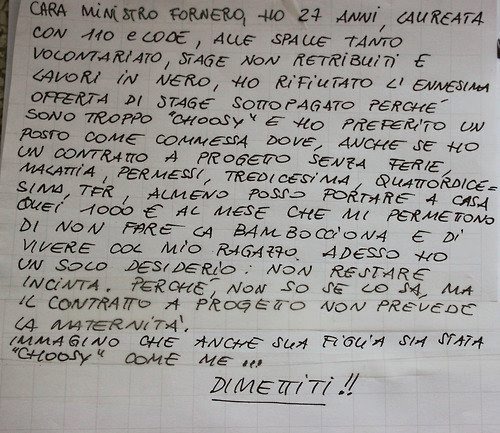 CARA MINISTRO FORNERO, HO 27 ANNI, LAUREATA
CON 110 e LODE, ALLE SPALLE TANTO
VOLONTARIATO, STAGE NON RETRIBUITI E
LAVORI IN NERO, HO RIFIUTATO L'ENNESIMA
OFFERTA DI STAGE SOTTOPAGATO PERCHÉ
SONO TROPPO "CHOOSY" E HO PREFERITO UN
POSTO COME COMMESSA DOVE, ANCHE SE HO
UN CONTRATTO A PROGETTO SENZA FERIE,
MALATTIA, PERMESSI, TREDICESIMA, QUATTORDICE-
SIMA, TFR, ALMENO POSSO PORTARE A CASA
QUEI 1000 € AL MESE CHE MI PERMETONO
DI NON FARE LA BAMBOCCIONA E DI
VIVERE COL MIO RAGAZZO. ADESSO HO
UN SOLO DESIDERIO: NON RESTARE
INCINTA. PERCHÉ, NON SO SE LO SA, MA
IL CONTRATTO A PROGETTO NON PREVEDE
LA MATERNITÀ.
IMMAGINO CHE ANCHE SUA FIGLIA SIA STATA
"CHOOSY" COME ME...
DIMETTITI!!